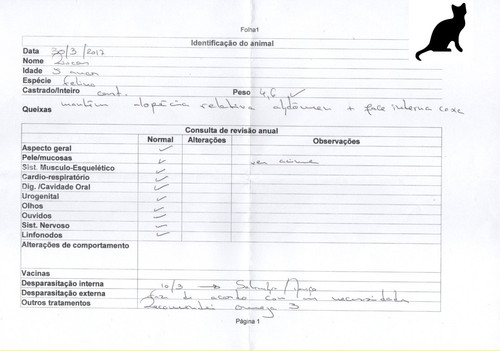 Folha1
Identificação do animal
Data 30/3/2017
Nome Lucas
Idade 3 anos
Espécie felino
Castrado/Inteiro cast. Peso 4,6
Queixas mantém alopécia relativa abdómen + face interna coxa
Consulta de revisão anual
Normal Alterações Observações
Aspecto geral ✓
Pele/mucosas ✓ ver acima
Sist. Musculo-Esquelético ✓
Cardio-respiratório ✓
Dig. /Cavidade Oral ✓
Urogenital ✓
Olhos ✓
Ouvidos ✓
Sist. Nervoso ✓
Linfonodos ✓
Alterações de comportamento
Vacinas
Desparasitação interna 10/3 →
Desparasitação externa faz de acordo com as necessidades
Outros tratamentos recomendei omega 3
Página 1